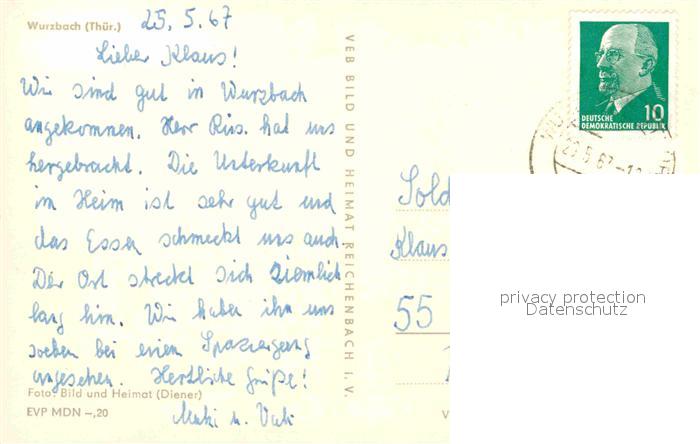 Wurzbach (Thür.)
25. 5. 67
Lieber Klaus!
Wir sind gut in Wurzbach
angekommen. Herr Rüs. hat uns
hergebracht. Die Unterkunft
im Heim ist sehr gut und
das Essen schmeckt uns auch.
Der Ort streckt sich ziemlich
lang hin. Wir haben ihn uns
soeben bei einem Spaziergang
angesehen. Herzliche Grüße!
Mutti u. Vati
Foto: Bild und Heimat (Diener)
EVP MDN –,20
VEB BILD UND HEIMAT REICHENBACH I. V.
10
DEUTSCHE
DEMOKRATISCHE REPUBLIK
Sold
Klaus
55
V
privacy protection
Datenschutz